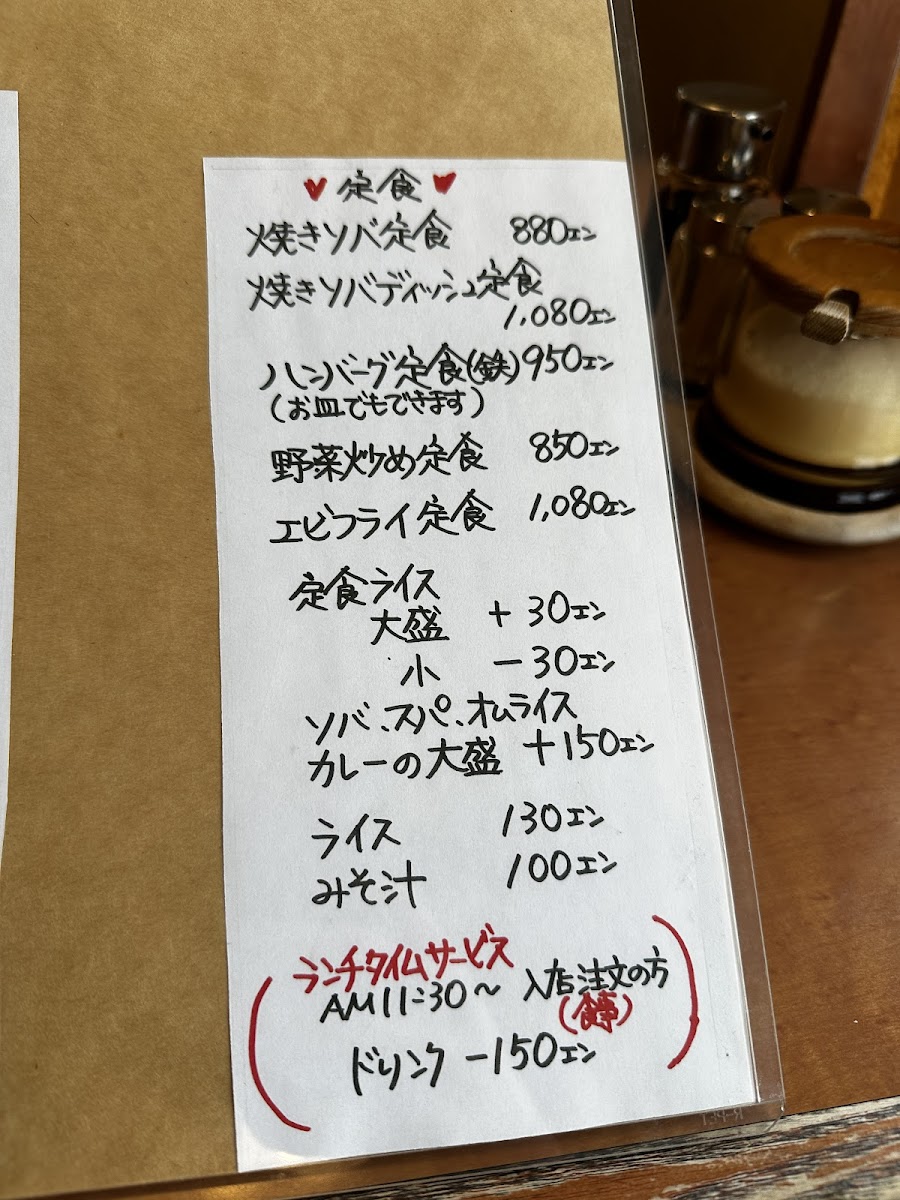 ♥定食♥
焼きソバ定食 880エン
焼きソバディッシュ定食
1,080エン
ハンバーグ定食(鉄) 950エン
(お皿でもできます)
野菜炒め定食 850エン
エビフライ定食 1,080エン
定食ライス
大盛 +30エン
小 -30エン
ソバ、スパ、オムライス
カレーの大盛 +150エン
ライス 130エン
みそ汁 100エン
ランチタイムサービス
AM11:30〜 入店注文の方
(食事)
ドリンク -150エン